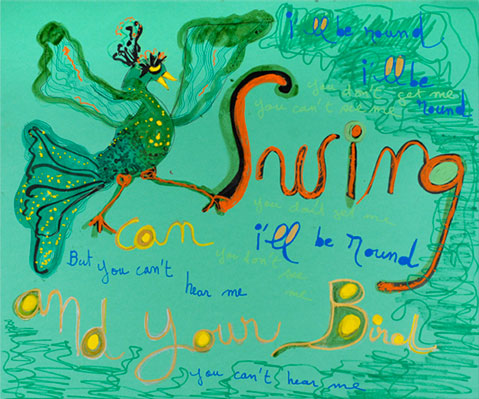 i'll be round
i'll be
You don't get me
You can't see me
round
Swing
You don't get me
can
i'll be round
You don't
see
me
But you can't
hear me
and your Bird
you can't hear me